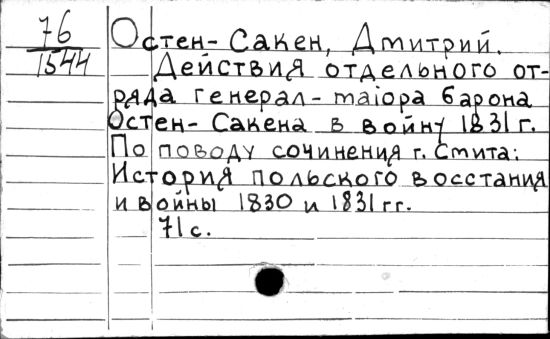 76
1544
Остен-Сакен, Дмитрий.
Действия отдельного от-
ряда генерал-маiора барона
Остен-Сакена в войну 1831 г.
По поводу сочинения г. Смита:
История польского восстания
и войны 1830 и 1831 гг.
71 с.